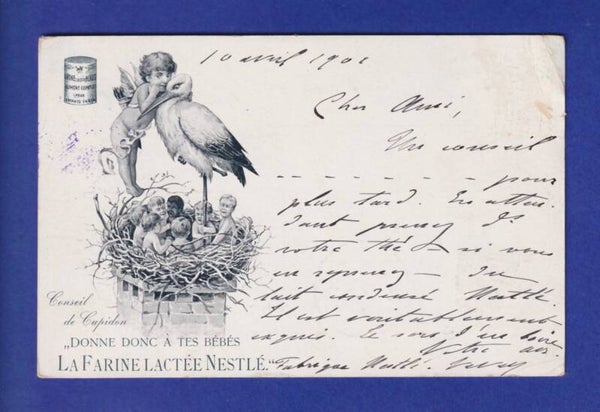 10 avril 1901
Cher Ami,
Un conseil
- - - - - - - pour
plus tard. En atten-
dant prenez ds
votre thé - si vous
en reprenez - du
lait condensé Nestlé.
Il est véritablement
exquis. Je sors d'en boire
Votre
Fabrique Nestlé. Vevey
FARINE LACTÉE NESTLÉ
ALIMENT COMPLET
Conseil
de Cupidon
„DONNE DONC À TES BÉBÉS
LA FARINE LACTÉE NESTLÉ."